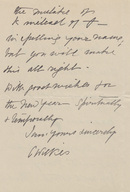 the
of
in spelling your name
but you will make
this all right.
With good wishes for
the new year - spiritually
& temporally
I am yours sincerely